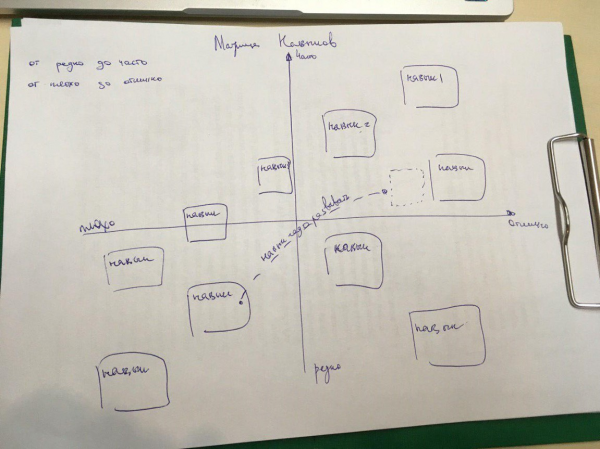 Матрица Навыков
от редко до часть
от плохо до отлично
Часто
навык 1
навык 2
навык
навык
навык
плохо
отлично
навык надо развивать
навык
навык
навык
навык
навык
редко